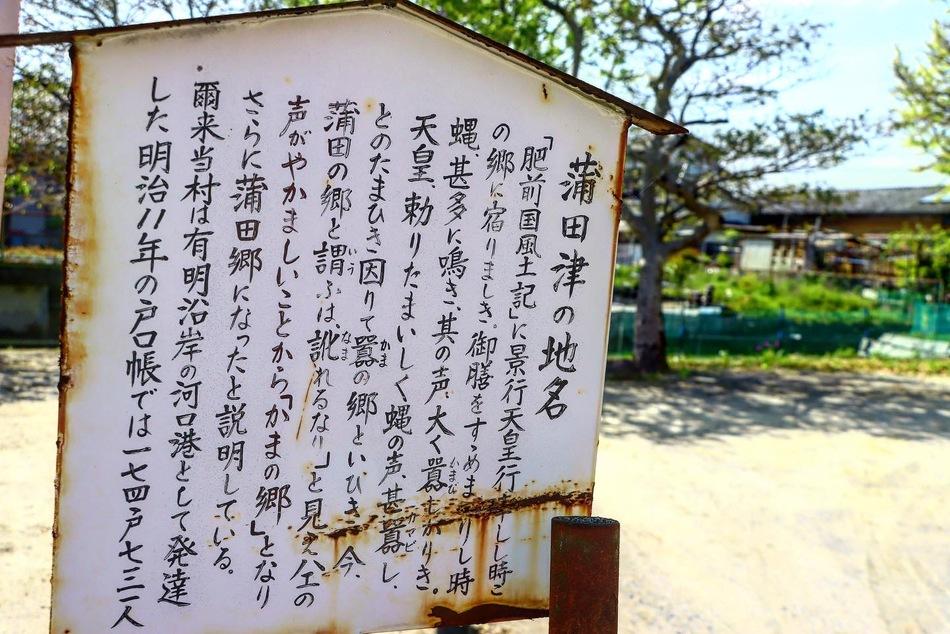 蒲田津の地名
「肥前国風土記」に景行天皇行しし時こ
の郷に宿りましき。御膳をすゝめまりし時
蝿甚多に鳴き、其の声、大く囂しかりき。
天皇、勅りたまいしく蝿の声甚囂し、
とのたまひき因りて囂の郷といひき 今、
蒲田の郷と謂ふは、訛れるなり」と見え ハエの
声がやかましいことから「かまの郷」となり
さらに蒲田郷になったと説明している。
爾来当村は有明沿岸の河口港として発達
した 明治11年の戸口帳では一七四戸七三一人